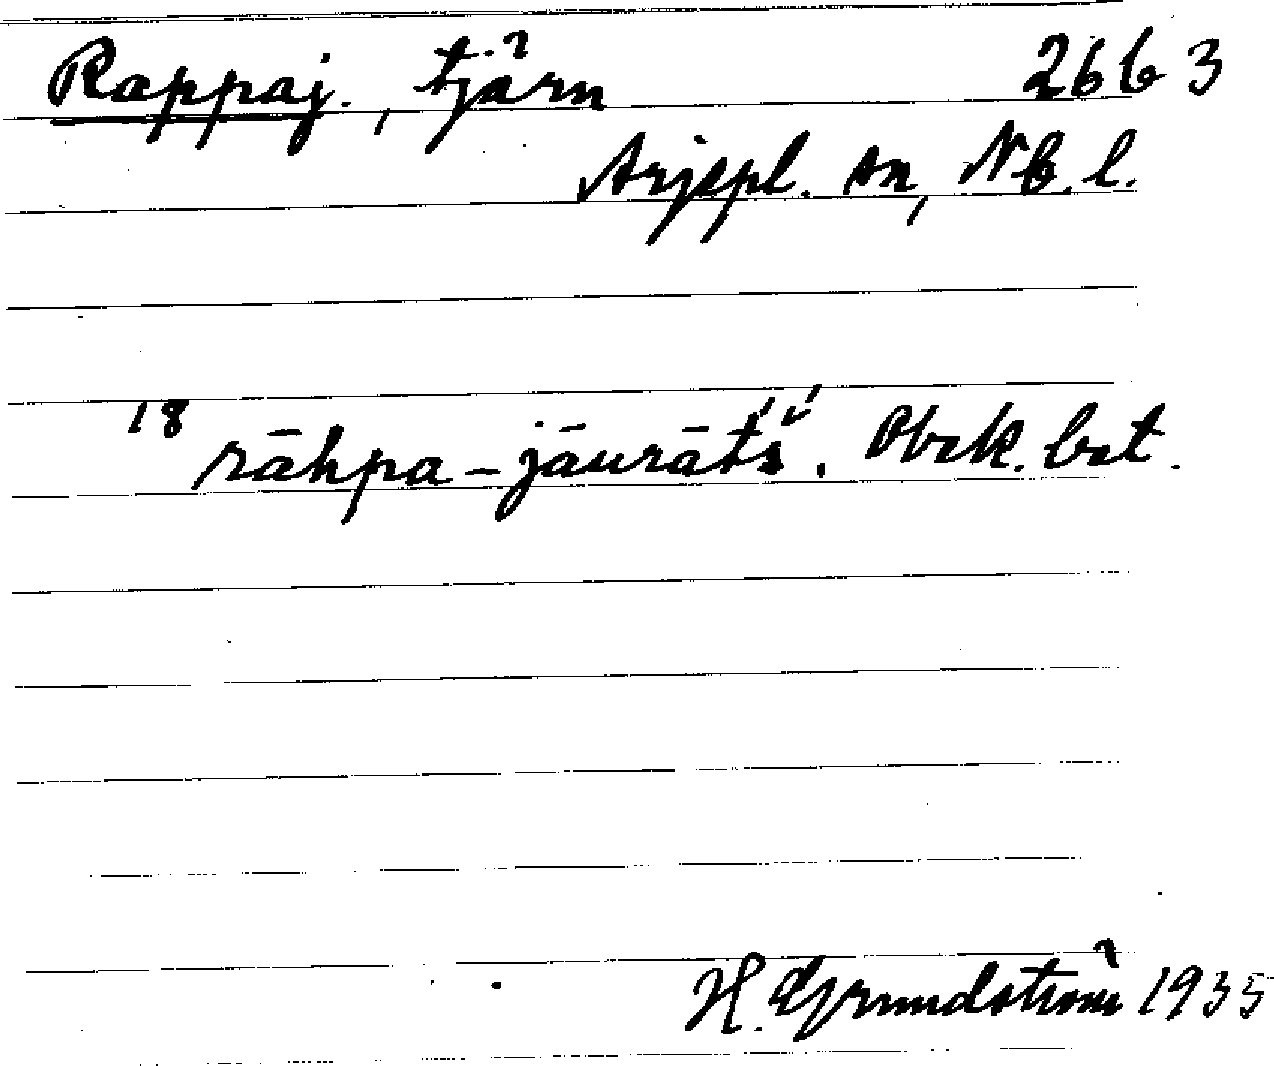 Rappaj., tjärn 2663
Arjepl. sn, Nb. l.
18 rāhpa-jāurāt́š́. Obek. bet.
H. Grundström 1935